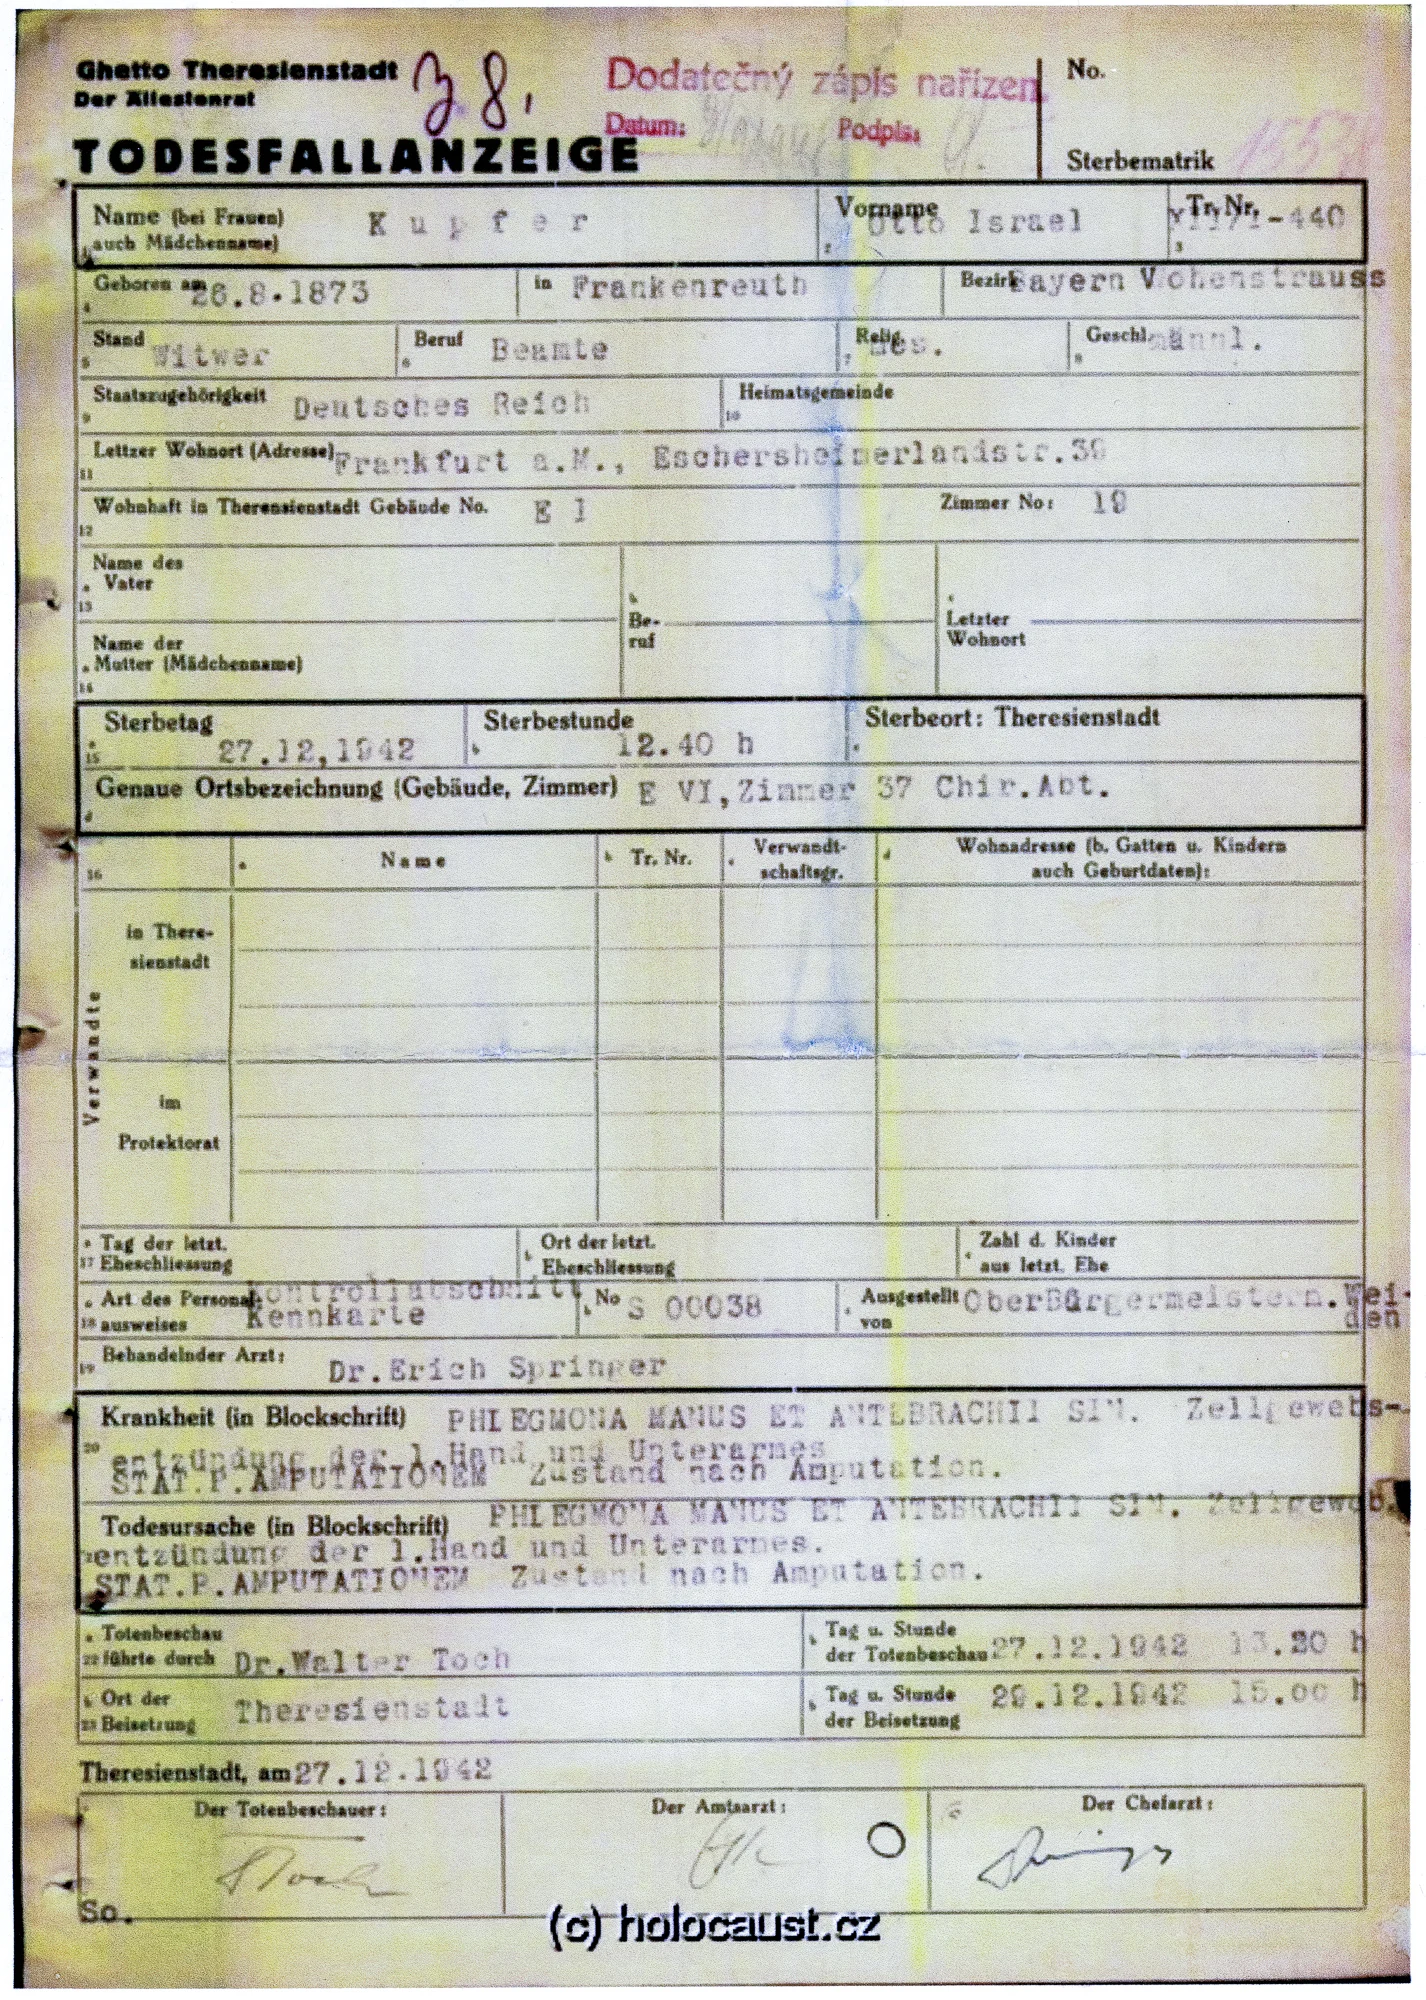 Ghetto Theresienstadt
Der Ältestenrat
TODESFALLANZEIGE
38.
Dodatečný zápis nařízen
Datum: Podpis:
No.
Sterbematrik
Name (bei Frauen) auch Mädchenname) Kupfer
Vorname Otto Israel
Tr. Nr. -440
Geboren am 26.8.1873 in Frankenreuth Bezirk Bayern Vohenstrauss
Stand Witwer Beruf Beamte Relig. Geschl. männl.
Staatszugehörigkeit Deutsches Reich Heimatsgemeinde
Lettzer Wohnort (Adresse) Frankfurt a.M., Eschersheimerlandstr.39
Wohnhaft in Therensienstadt Gebäude No. E I Zimmer No: 19
Name des
Vater
Name der
Mutter (Mädchenname)
Be-
ruf
Letzter
Wohnort
Sterbetag 27.12,1942 Sterbestunde 12.40 h Sterbeort: Theresienstadt
Genaue Ortsbezeichnung (Gebäude, Zimmer) E VI,Zimmer 37 Chir.Abt.
Name Tr. Nr. Verwandt-
schaftsgr. Wohnadresse (b. Gatten u. Kindern
auch Geburtdaten):
Verwandte
in There-
sienstadt
im
Protektorat
Tag der letzt.
Eheschliessung
Ort der letzt.
Eheschliessung
Zahl d. Kinder
aus letzt. Ehe
Art des Personal-
ausweises
Kontrollabschnitt
Kennkarte
No S 00038
Ausgestellt
von OberBürgermeister n. Wei-
den
Behandelnder Arzt: Dr.Erich Springer
Krankheit (in Blockschrift) PHLEGMONA MANUS ET ANTEBRACHII SIN. Zellgewebs-
entzündung der l.Hand und Unterarmes
STAT.P.AMPUTATIONEM Zustand nach Amputation.
Todesursache (in Blockschrift) PHLEGMONA MANUS ET ANTEBRACHII SIN. Zellgeweb.
entzündung der l.Hand und Unterarmes.
STAT.P.AMPUTATIONEM Zustand nach Amputation.
Totenbeschau
führte durch Dr.Walter Toch
Tag u. Stunde
der Totenbeschau 27.12.1942 13.20 h
Ort der
Beisetzung Theresienstadt
Tag u. Stunde
der Beisetzung 29.12.1942 15.00 h
Theresienstadt, am 27.12.1942
Der Totenbeschauer: Der Amtsarzt: Der Chefarzt:
So.
(c) holocaust.cz